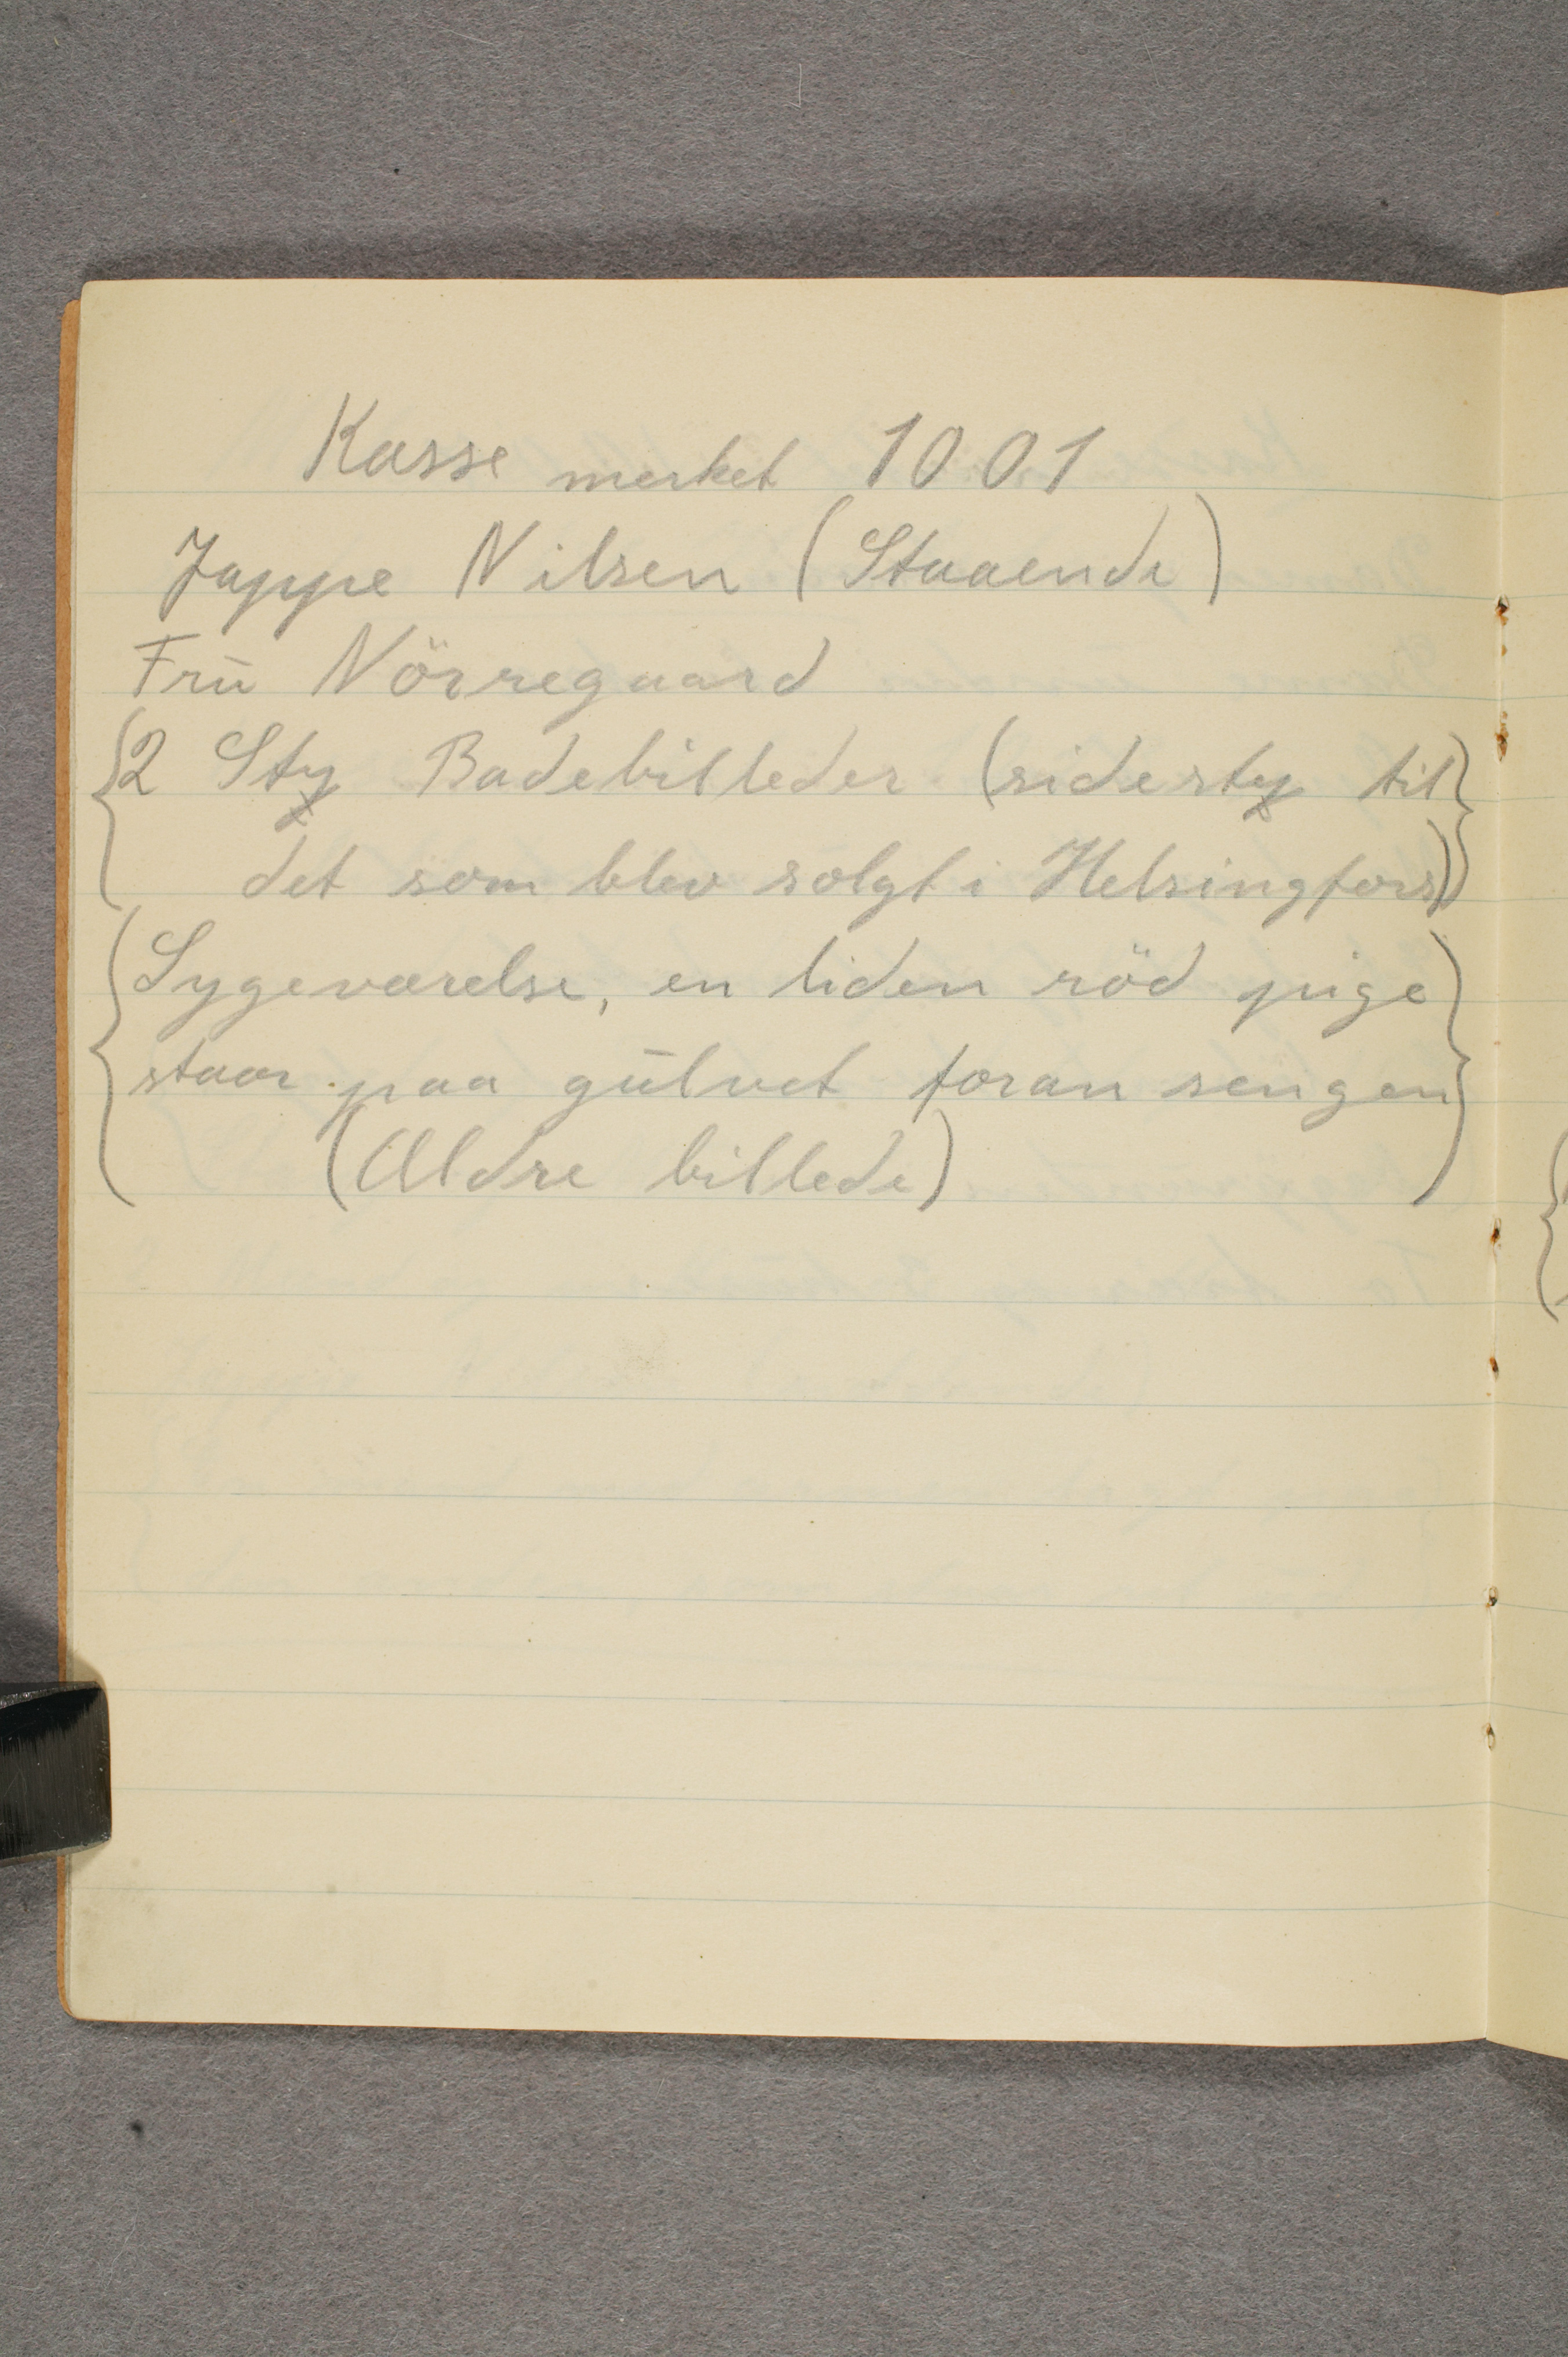 Kasse merket 1001
Jappe Nilsen (Staaende)
Frū Nörregaard
{2 Sty Badebilleder (sidesty til}
det som blev solgt i Helsingfors)
{Sygeværelse, en liden röd pige}
staar paa gūlvet foran sengen
(Ældre billede)